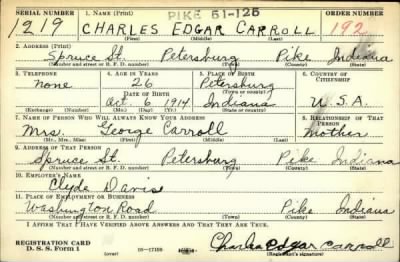 SERIAL NUMBER 1. NAME (Print) PIKE 61-125 ORDER NUMBER
1219 CHARLES EDGAR CARROLL 192
(First) (Middle) (Last)
2. ADDRESS (Print)
Spruce St. Petersburg Pike Indiana
(Number and street or R. F. D. number) (Town) (County) (State)
3. TELEPHONE 4. AGE IN YEARS 5. PLACE OF BIRTH 6. COUNTRY OF CITIZENSHIP
none 26 Petersburg
DATE OF BIRTH (Town or county)
Oct. 6 1914 Indiana U.S.A.
(Exchange) (Number) (Mo.) (Day) (Yr.) (State or country)
7. NAME OF PERSON WHO WILL ALWAYS KNOW YOUR ADDRESS 8. RELATIONSHIP OF THAT PERSON
Mrs. George Carroll Mother
(Mr., Mrs., Miss) (First) (Middle) (Last)
9. ADDRESS OF THAT PERSON
Spruce St. Petersburg Pike Indiana
(Number and street or R. F. D. number) (Town) (County) (State)
10. EMPLOYER'S NAME
Clyde Davis
11. PLACE OF EMPLOYMENT OR BUSINESS
Washington Road Pike Indiana
(Number and street or R. F. D. number) (Town) (County) (State)
I AFFIRM THAT I HAVE VERIFIED ABOVE ANSWERS AND THAT THEY ARE TRUE.
REGISTRATION CARD
D. S. S. Form 1 (over) 16-17105 Charles Edgar Carroll
(Registrant's signature)